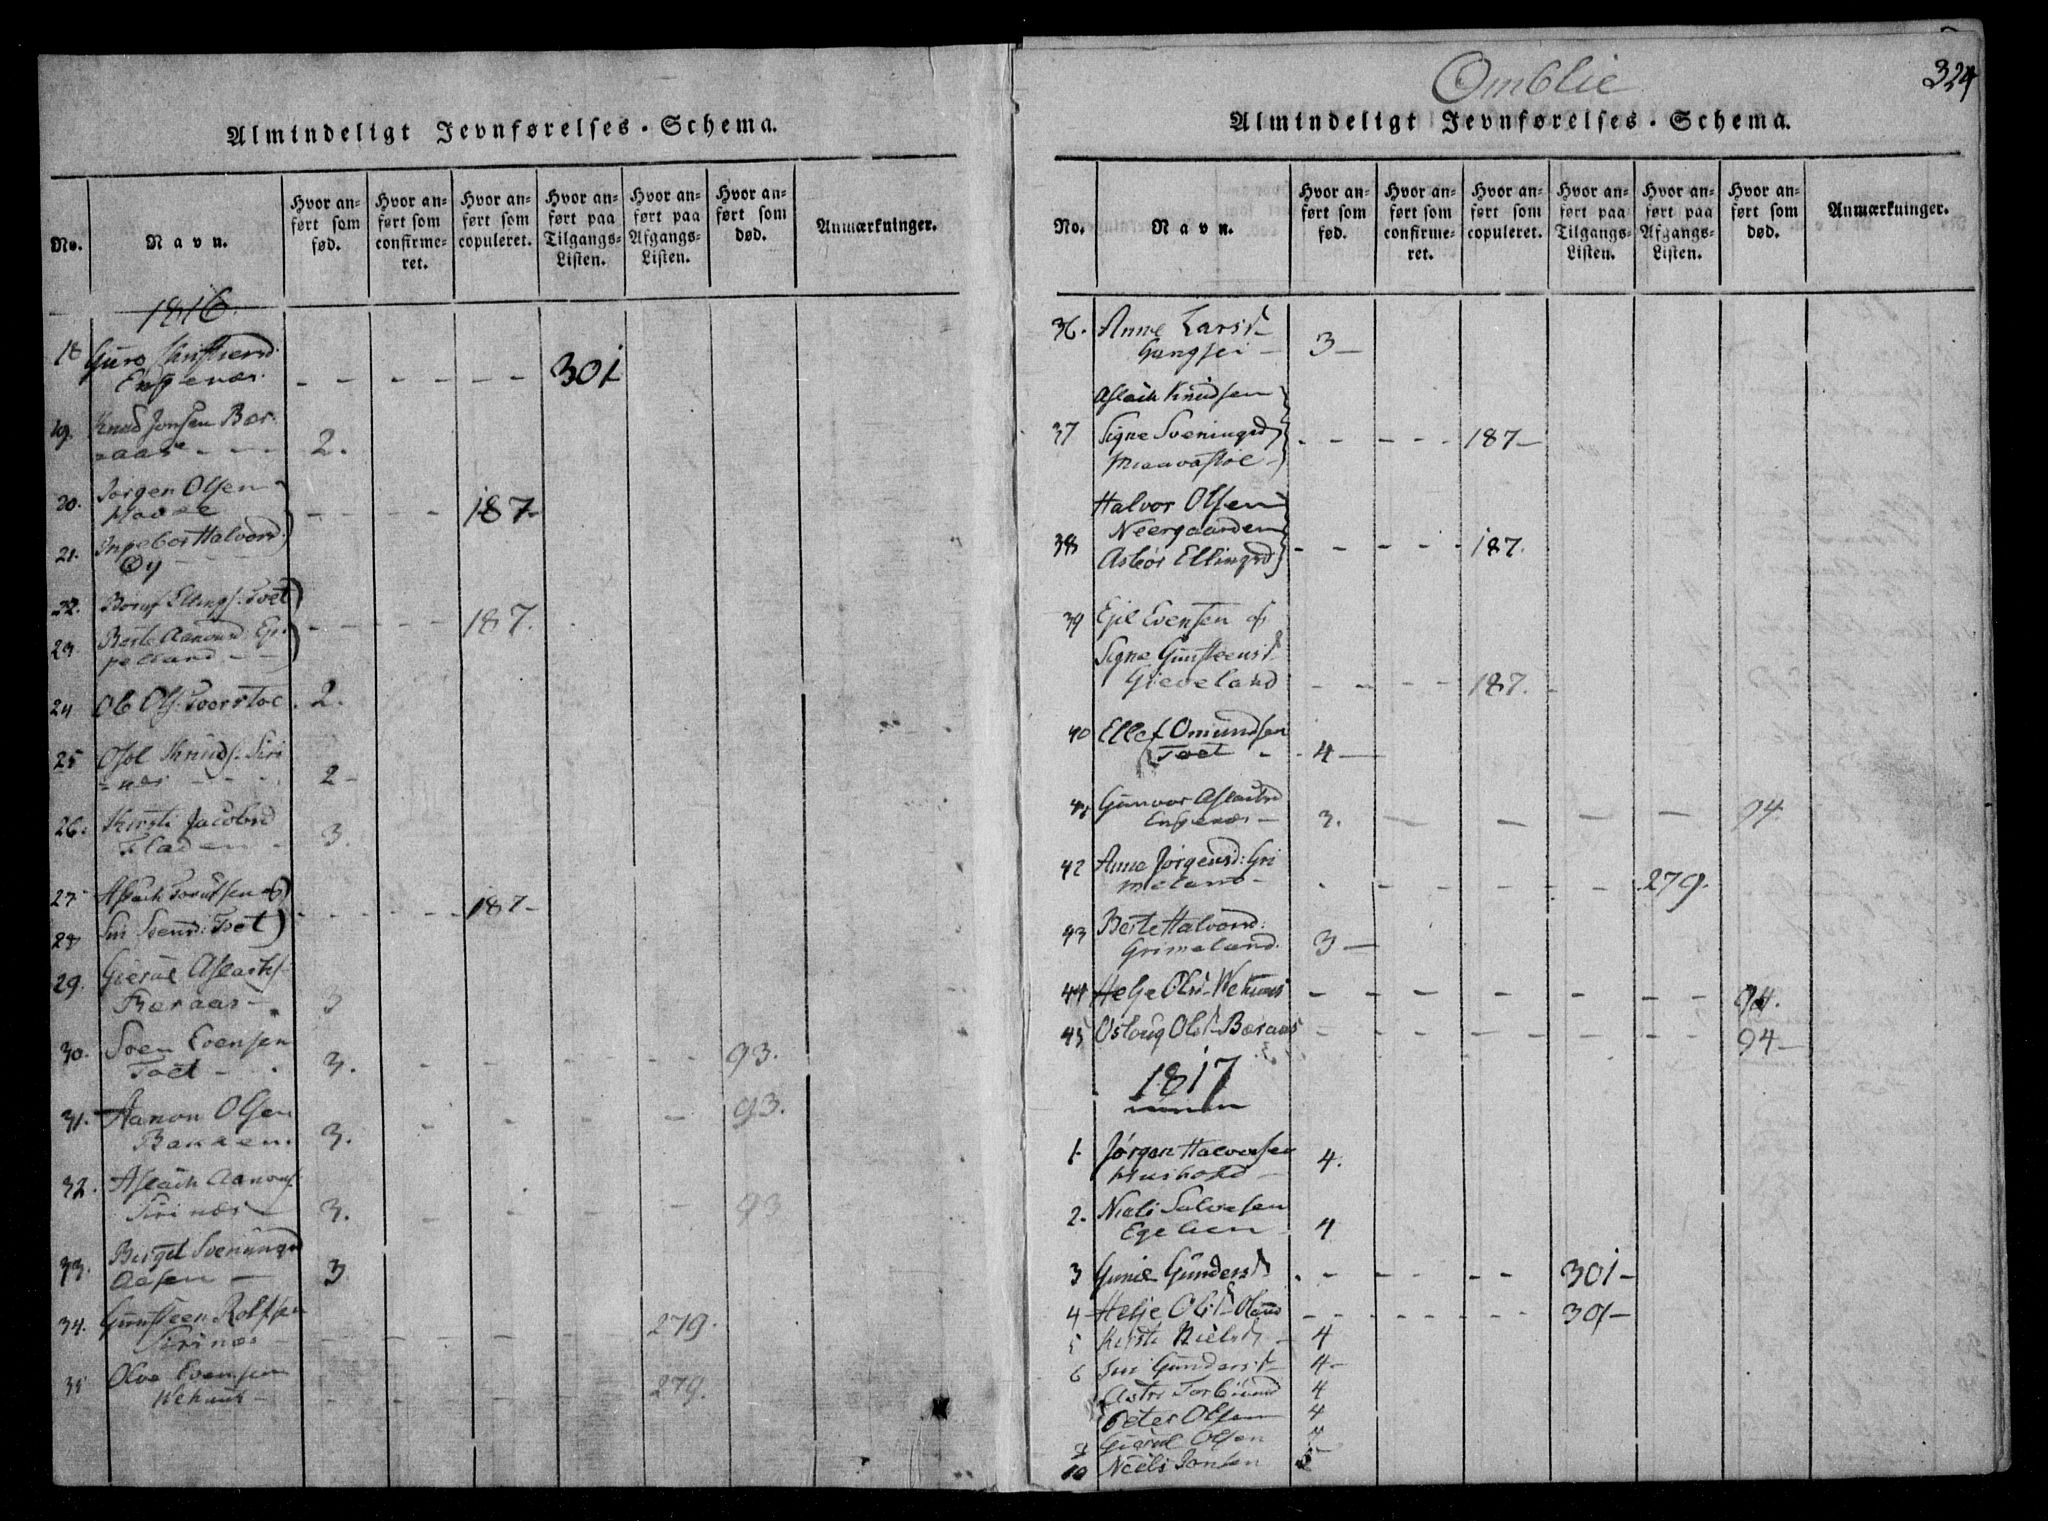 Almindeligt Jevnførelses-Schema.
No.
Navn.
Hvor anført som fød.
Hvor anført som confirmeret.
Hvor anført som copuleret.
Hvor anført paa Tilgangs-Listen.
Hvor anført paa Afgangs-Listen.
Hvor anført som død.
Anmærkninger.
1816.
18 Guro
Engenæs. - - - - - - 301
19. Knud Jonsen Bær-
aas - - - 2.
20. Jørgen Olsen
- - - - 187-
21. Ingebor Halvord.
Øy
22. Ellings. Tvet
- - - - 187.
23. Berte Aanund. Ep-
peland - -
24 Ole Ols. Tvorstoe. 2.
25 Knuds. Siri
næs - - - 2-
26. Kirsti Jacobsd
Fladen - 3.
27. Aslach
- - - - 187-
28 Siri Svend: Tvet
29. Gierul Aslachs.
Bæraas - 3
30. Sven Evensen
Tvet - - 3. - - - - 93.
31. Aanon Olsen
Bakken. 3. - - - - 93.
32. Aslach Aanons.
Sirinæs 3. - - - - 93
33. Birgit Sveningsd
Aasen - 3
34. Gunsteen Rolfsen
Sirinæs - - - - - 279.
35 Olve Evensen
Wehuus - - - - 279.
Omblie
324
Almindeligt Jevnførelses-Schema.
No.
Navn.
Hvor anført som fød.
Hvor anført som confirmeret.
Hvor anført som copuleret.
Hvor anført paa Tilgangs-Listen.
Hvor anført paa Afgangs-Listen.
Hvor anført som død.
Anmærkninger.
36. Anne Larsd
Gangsei - 3-
Aslach Knudsen
37 Signe Sveningsd - - - - - 187-
Halvor Olsen
Neergaarden
38 Asbør Ellingsd - - - - - 187.
39 Ejel Evensen og
Signe Gunsteensd
Gieveland - - - - 187. -
40 Ellef Omundsen
Tvet - 4-
41 Gunvor Aslachsd
Engenæs - 3. - - - - 94.
42 Anne Jørgensd: Gri
meland - - - - - 279.
43 Berte Halvord:
Grimeland. 3-
44 Helje Olsd. Wehuus - - - - - 94.
45 Oslaug Olsd. Bæraas - - - - - 94-
1817
1. Jørgen Halvorsen
4.
2. Niels Salvesen
Egelien 4
3 Gunder - - - - - 301-
4 Helje Olsd - - - - - - 301-
5 Kirsti Nielsd - 4
6 Siri Gundersd 4-
Astri Torbiørnd 4
Peter Olsen 4
9 Gierul Olsen 4
10 Niels Jonsen 5